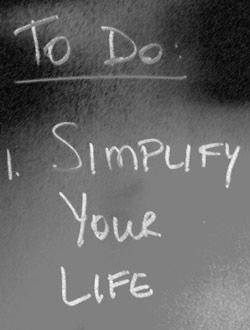 To Do:
1. SIMPLIFY
YOUR
LIFE